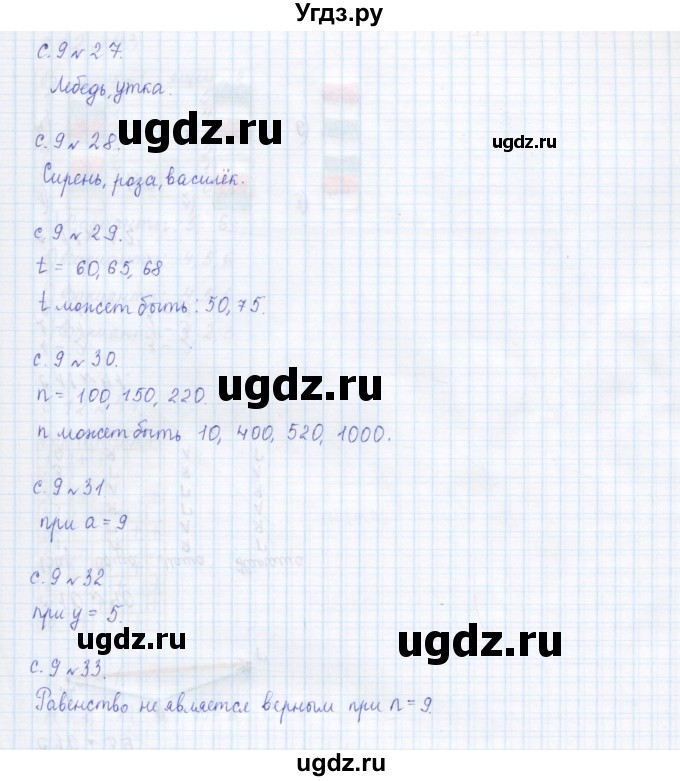 Угдз.ру
с. 9 № 27.
Лебедь, утка.
ugdz.ru
ugdz.ru
с. 9 № 28.
Сирень, роза, василёк.
с. 9 № 29.
t = 60, 65, 68
t может быть: 50, 75.
с. 9 № 30.
ugdz.ru
n = 100, 150, 220.
n может быть 10, 400, 520, 1000.
с. 9 № 31
при a = 9
с. 9 № 32
при y = 5.
ugdz.ru
ugdz.ru
с. 9 № 33.
Равенство не является верным при n = 9.
ugdz.ru